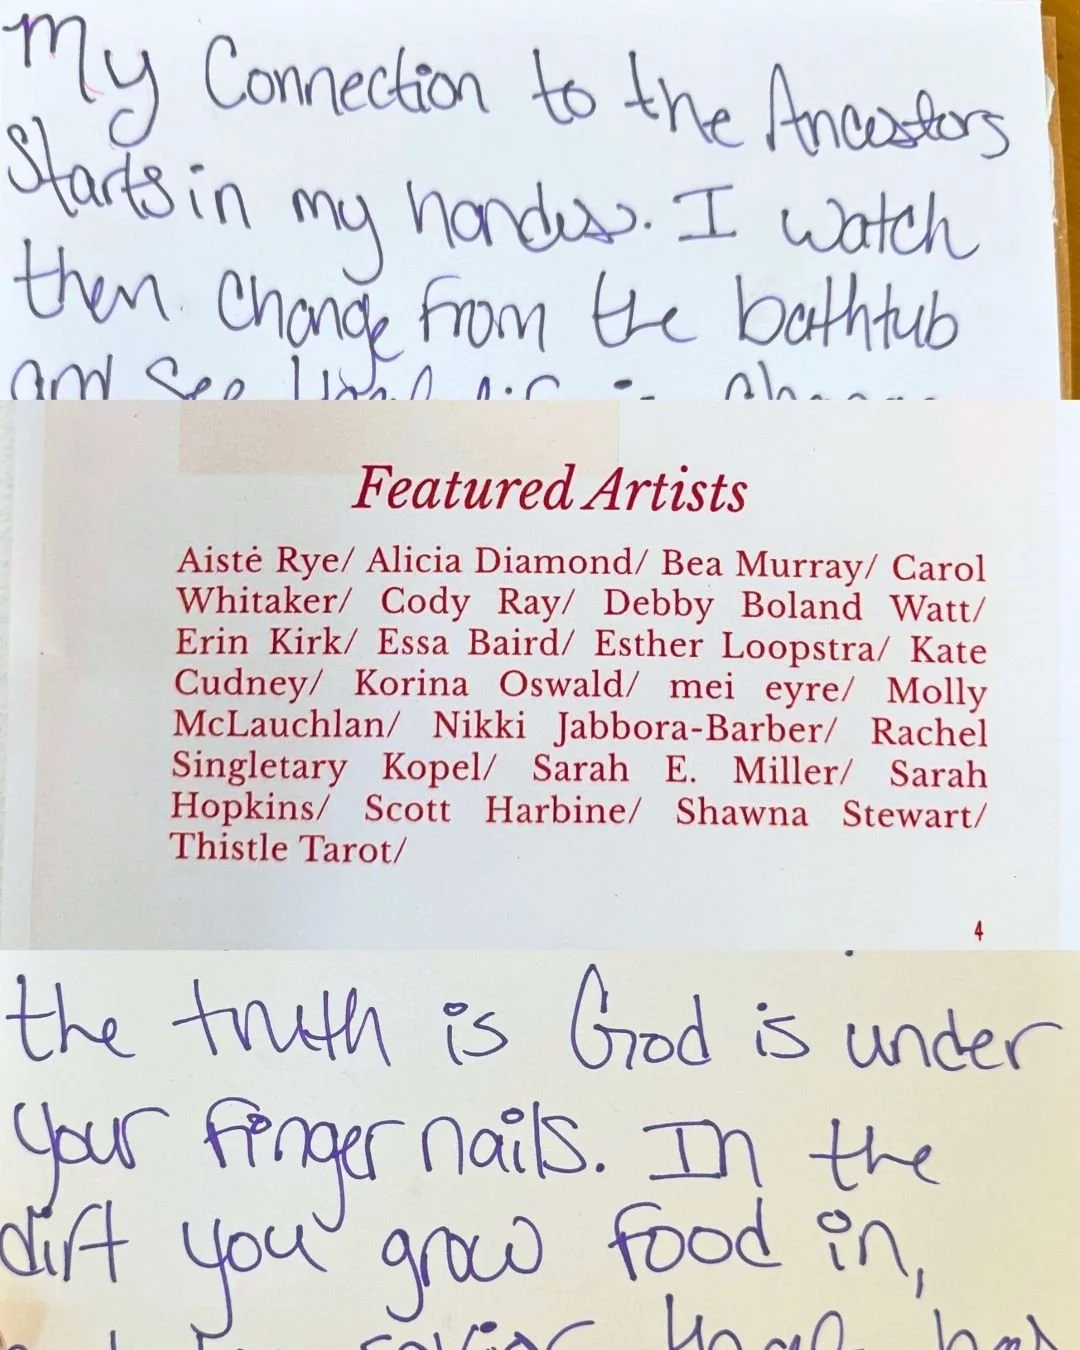 My Connection to the Ancestors
Starts in my hands. I watch
them change from the bathtub
and see
Featured Artists
Aistė Rye/ Alicia Diamond/ Bea Murray/ Carol
Whitaker/ Cody Ray/ Debby Boland Watt/
Erin Kirk/ Essa Baird/ Esther Loopstra/ Kate
Cudney/ Korina Oswald/ mei eyre/ Molly
McLauchlan/ Nikki Jabbora-Barber/ Rachel
Singletary Kopel/ Sarah E. Miller/ Sarah
Hopkins/ Scott Harbine/ Shawna Stewart/
Thistle Tarot/
4
the truth is God is under
your finger nails. In the
dirt you grow food in,